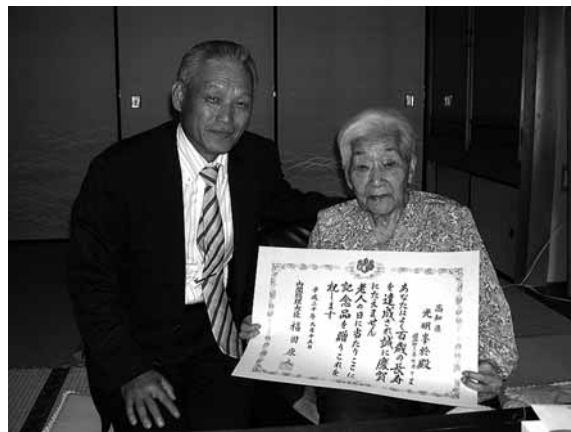 高知県
光明峯於殿
あなたはよく百歳の長寿
を達成され誠に慶賀
にたえません
老人の日に当たりここに
記念品を贈りこれを
祝します
平成二十年九月十五日
内閣総理大臣 福田康夫